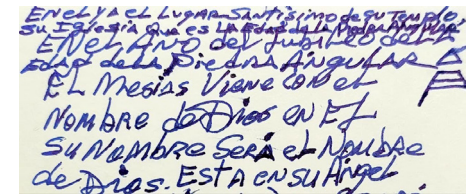 EN eL VA eL LugAR SANTísimo de su Templo
su Iglesia Que es LA Edad de LA Piedra Angular
EN eL AÑO del Jubileo de LA
EDAD de LA Piedra ANgULAR
EL Mesías Viene CON eL
NOMbRe de Dios eN EL
SU NOMbRe SeRá eL NOMbRe
de Dios. ESTA eN SU ÁNgeL